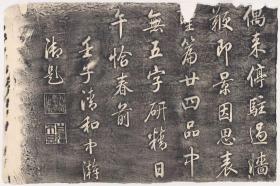 偶来停駐過牆
籬即景因思表
聖篇廿四品中
無五字研精日
午恰春前
壬子清和中澣
御題